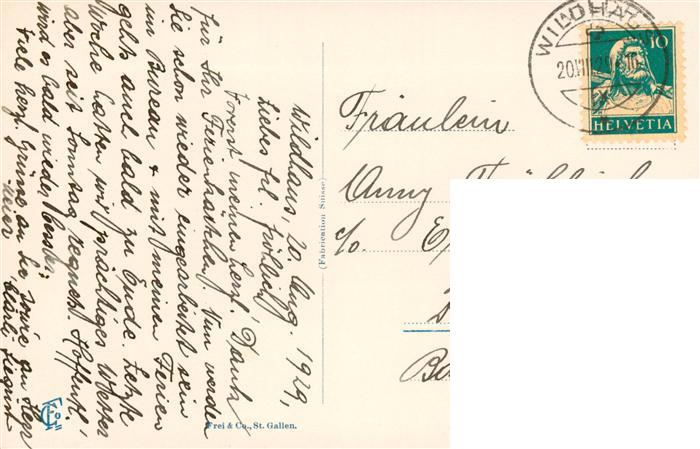 Wildhaus, 20. Aug. 1929,
Liebes Frl. Fröhlich,
Vorerst meinen herzl. Dank
für Ihr Ferienkärtchen. Nun werden
Sie schon wieder eingearbeitet sein
im Bureau & mit meinen Ferien
geht's auch bald zu Ende. Letzte
Woche hatten wir prächtiges Wetter
aber seit Sonntag regnet's. Hoffentl.
wird es bald wieder besser.
Viele herzl. Grüsse an Sie sowie an Hegr
meier
(Fabrication Suisse)
Frei & Co., St. Gallen.
WILDHAUS
20.VIII.29
10
HELVETIA
Fräulein
Anny Fröhlich
c/o.